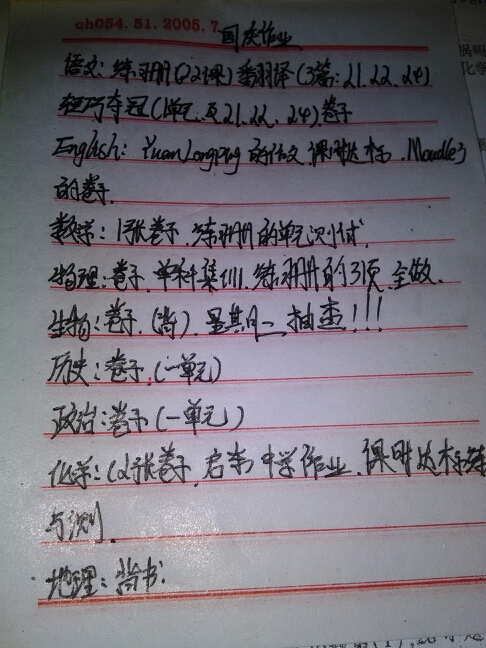 ch054.51.2005.7
国庆作业
语文:练习册(22课)翻译(3篇:21.22.24)
轻巧夺冠(单元及21.22.24)卷子
English: YuanLongping 的作文 课时达标.Moudle3
的卷子.
数学:1张卷子.练习册的单元测试.
物理:卷子.单科集训.练习册的3页 全做.
生物:卷子.(背).星期一抽查!!!
历史:卷子.(一单元)
政治:卷子(一单元)
化学:(2张卷子.启东中学作业.课时达标练
与测.
地理:背书.